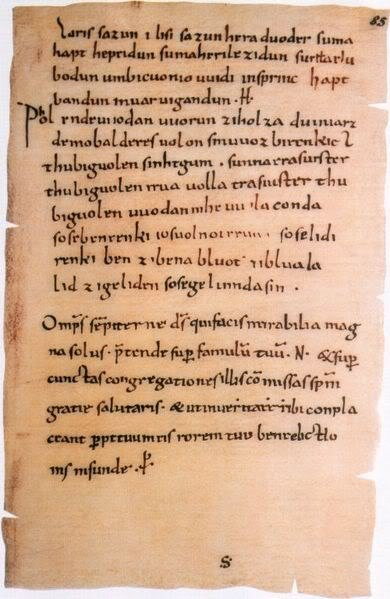 85
Eiris sazun idisi sazun hera duoder suma
hapt heptidun sumaherilezidun sumaclu
bodun umbicuonio uuidi insprinc hapt
bandun inuar uigandun. H.
Phol endeuuodan uuorun ziholza du uuart
demobalderes uolon sinuuoz birenkict
thubiguolen sinhtgunt. sunnaerasuister
thubiguolen friia uolla erasuister thu
biguolen uuodan
sosebenrenki soselidi
renki ben zibena bluot zibluoda
lid zigeliden sosegelimidasin.
Omp̅s sep̅iterne ds̅ quifacis mirabilia mag
na solus. p̅tende sup̅ famulu̅ tuu̅. N. & sup̅
cunctas congregationes illis co̅missas sp̅m
gratie salutaris. & utinueritate tibi conpla
ceant p̅petuum eis rorem tuę benedictio
nis infunde. p̅
S.